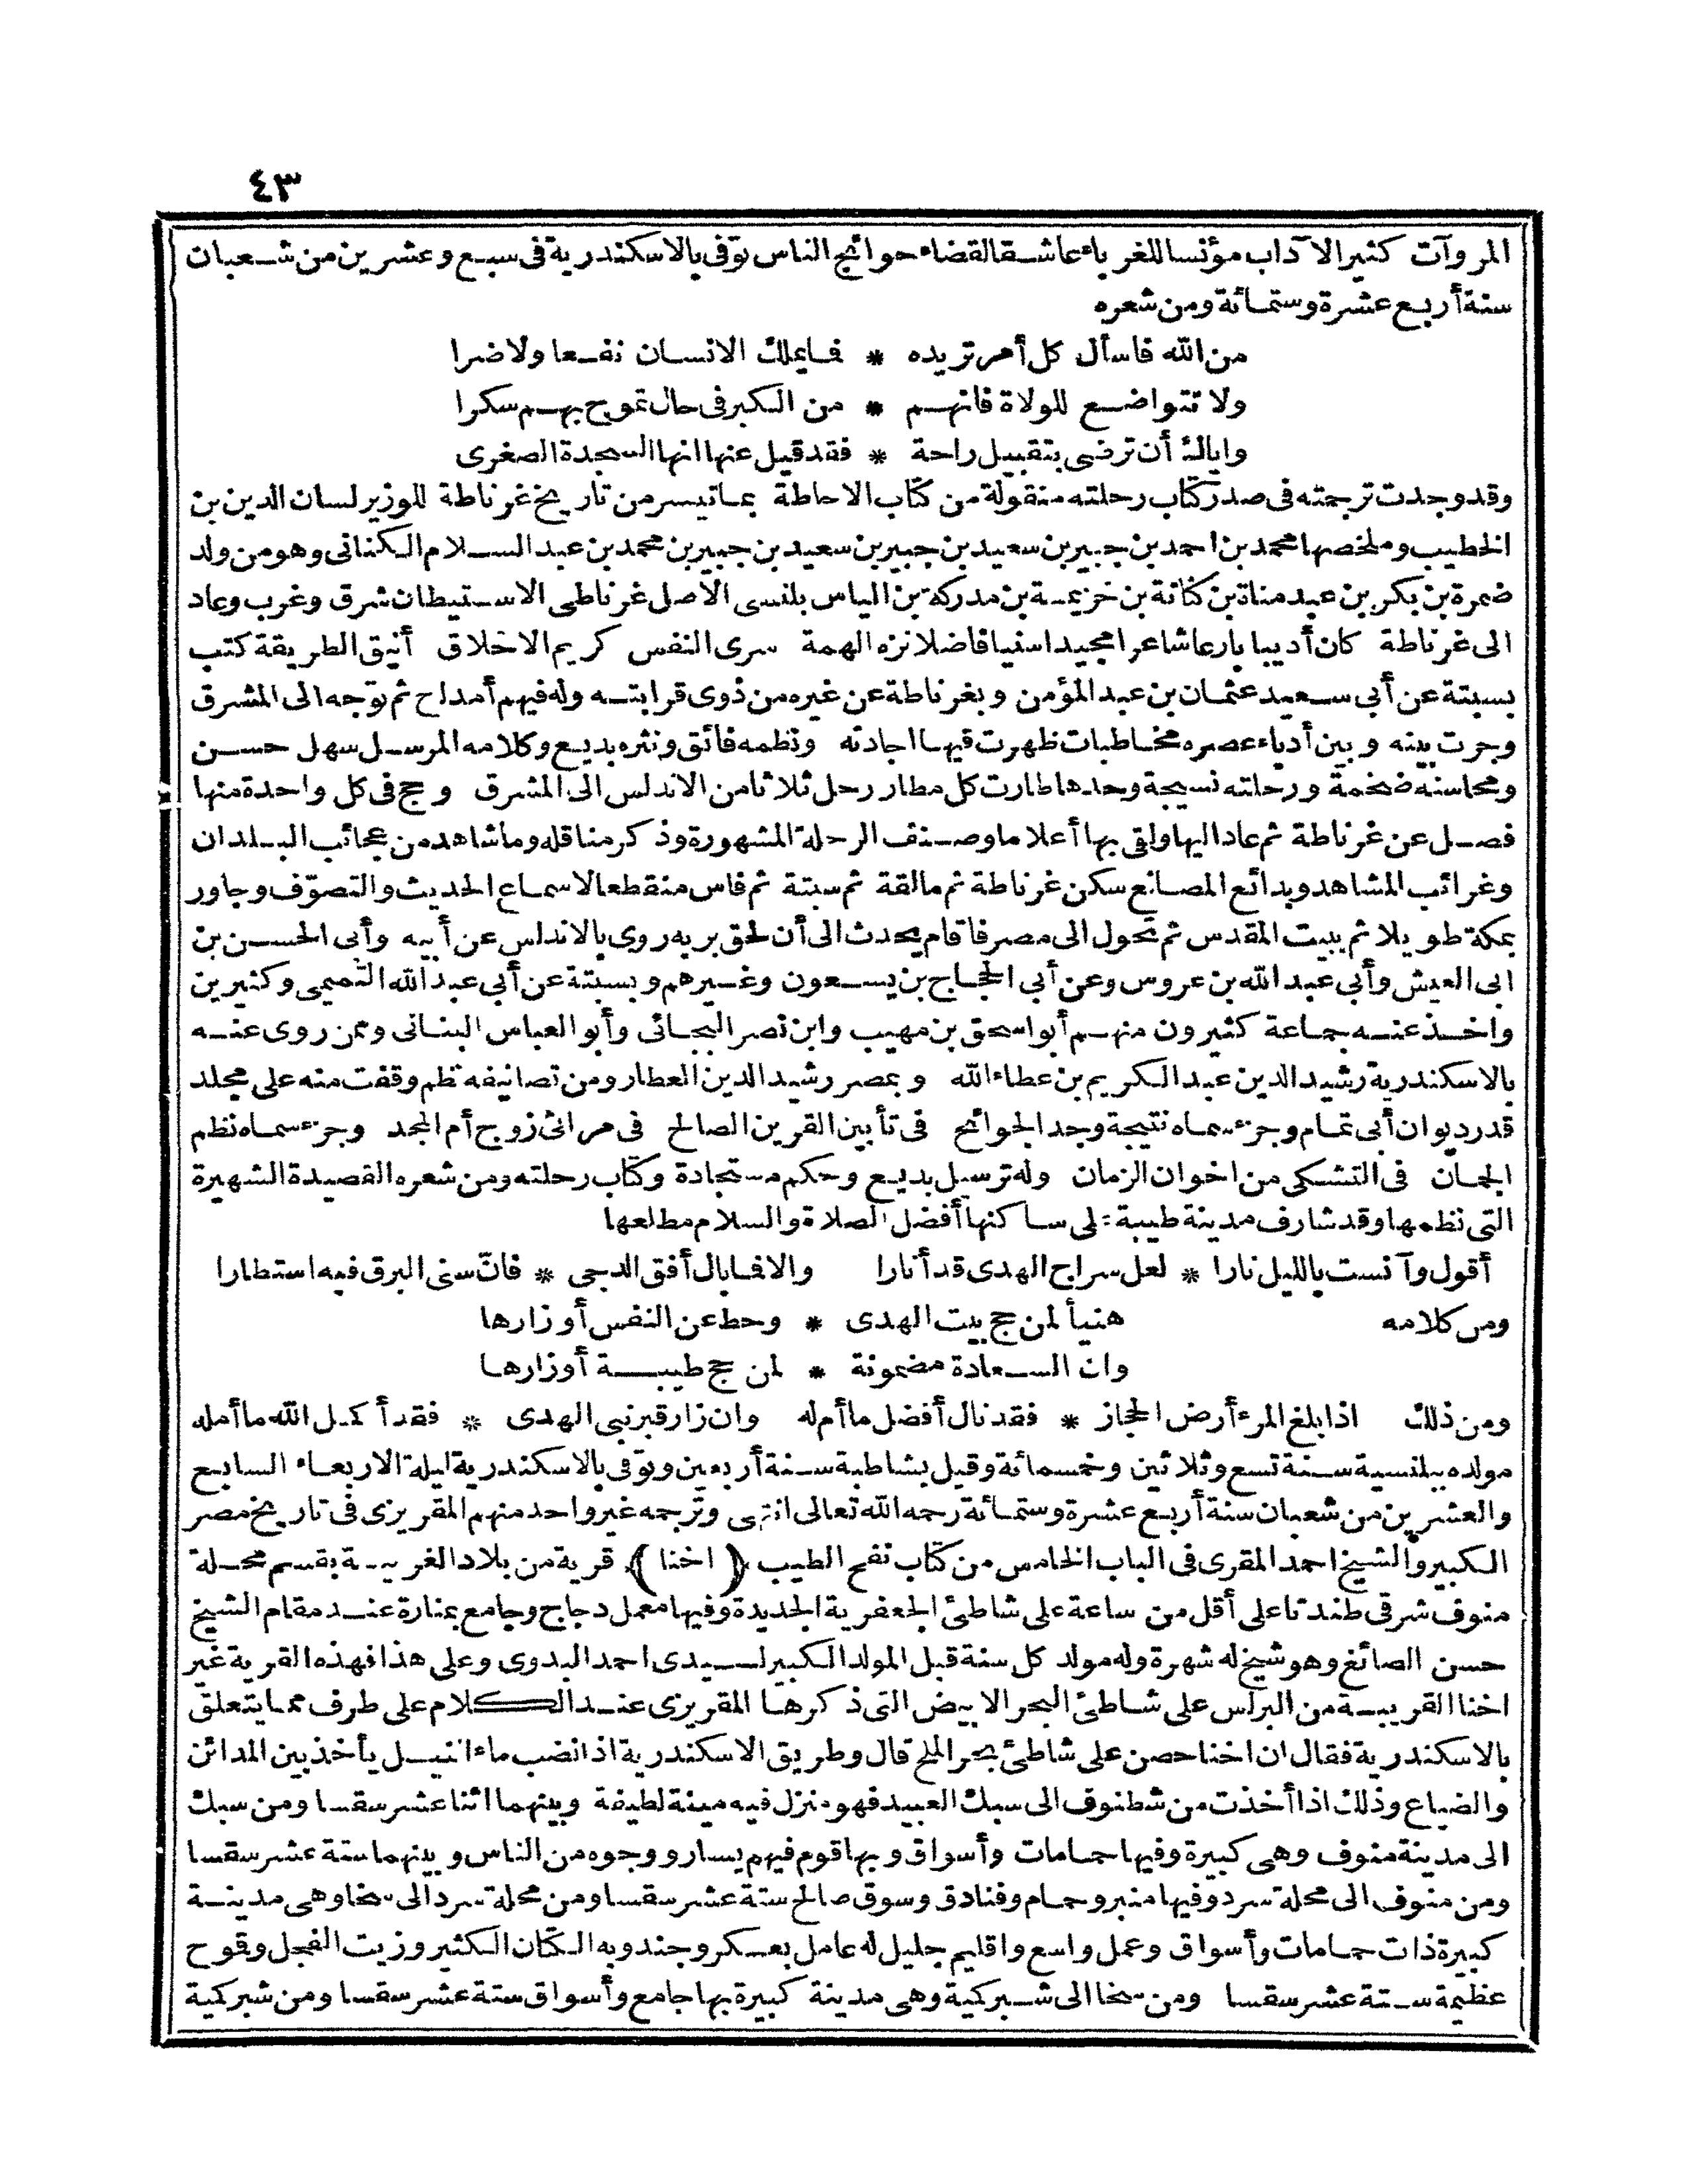 ٤٣
المروآت كثير الآداب مؤنسا للغرباء عاشقا لقضاء حوائج الناس توفى بالاسكندرية فى سبع وعشرين من شعبان
سنة أربع عشرة وستمائة ومن شعره
من الله فاسأل كل أمر تريده * فما يملك الانسان نفعا ولا ضرا
ولا تتواضع للولاة فانهم * من الكبر فى حال تموج بهم سكرا
واياك أن ترضى بتقبيل راحة * فقد قيل عنها انها السجدة الصغرى
وقد وجدت ترجمته فى صدر كتاب رحلته منقولة من كتاب الاحاطة بما تيسر من تاريخ غرناطة للوزير لسان الدين بن
الخطيب وملخصها محمد بن احمد بن جبير بن سعيد بن جبير بن سعيد بن جبير بن محمد بن عبد السلام الكنانى وهو من ولد
ضمرة بن بكر بن عبد مناة بن كنانة بن خزيمة بن مدركة بن الياس بلنسى الاصل غرناطى الاستيطان شرق وغرب وعاد
الى غرناطة كان أديبا بارعا شاعرا مجيدا سنيا فاضلا نزه الهمة سرى النفس كريم الاخلاق أنيق الطريقة كتب
بسبتة عن أبى سعيد عثمان بن عبد المؤمن وبغرناطة عن غيره من ذوى قرابته وله فيهم أمداح ثم توجه الى المشرق
وجرت بينه وبين أدباء عصره مخاطبات ظهرت فيها اجادته ونظمه فائق ونثره بديع وكلامه المرسل سهل حسن
ومحاسنه ضخمة ورحلته نسيجة وحدها طارت كل مطار رحل ثلاثا من الاندلس الى المشرق وحج فى كل واحدة منها
فصل عن غرناطة ثم عاد اليها ولقى بها أعلاما وصنف الرحلة المشهورة وذكر مناقله وما شاهد من عجائب البلدان
وغرائب المشاهد وبدائع المصانع سكن غرناطة ثم مالقة ثم سبتة ثم فاس منقطعا لاسماع الحديث والتصوّف وجاور
بمكة طويلا ثم ببيت المقدس ثم تحول الى مصر فاقام يحدث الى أن لحق بربه روى بالاندلس عن أبيه وأبى الحسن بن
ابى العيش وأبى عبد الله بن عروس وعن أبى الحجاج بن يسعون وغيرهم وبسبتة عن أبى عبد الله التميمى وكثيرين
واخذ عنه جماعة كثيرون منهم أبو اسحق بن مهيب وابن نصر البجائى وأبو العباس البنانى وممن روى عنه
بالاسكندرية رشيد الدين عبد الكريم بن عطاء الله وبمصر رشيد الدين العطار ومن تصانيفه نظم وقفت منه على مجلد
قدر ديوان أبى تمام وجزء سماه نتيجة وجد الجوانح فى تأبين القرين الصالح فى مراثى زوج أم المجد وجزء سماه نظم
الجمان فى التشكى من اخوان الزمان وله ترسيل بديع وحكم مستجادة وكتاب رحلته ومن شعره القصيدة الشهيرة
التى نظمها وقد شارف مدينة طيبة على ساكنها أفضل الصلاة والسلام مطلعها
أقول وآنست بالليل نارا * لعل سراج الهدى قد أنارا والا فما بال أفق الدجى * فانّ سنى البرق فيه استطارا
ومن كلامه هنيأ لمن حج بيت الهدى * وحط عن النفس أوزارها
وان السعادة مضمونة * لمن حج طيبة أو زارها
ومن ذلك اذا بلغ المرء أرض الحجاز * فقد نال أفضل ما أم له وان زار قبر نبى الهدى * فقد أكمل الله ما أمله
مولده ببلنسية سنة تسع وثلاثين وخمسمائة وقيل بشاطبة سنة أربعين وتوفى بالاسكندرية ليلة الاربعاء السابع
والعشرين من شعبان سنة أربع عشرة وستمائة رحمه الله تعالى انتهى وترجمه غير واحد منهم المقريزى فى تاريخ مصر
الكبير والشيخ احمد المقرى فى الباب الخامس من كتاب نفح الطيب (اخنا) قرية من بلاد الغربية بقسم محلة
منوف شرقى طندتا على أقل من ساعة على شاطئ الجعفرية الجديدة وفيها معمل دجاج وجامع بمنارة عند مقام الشيخ
حسن الصائغ وهو شيخ له شهرة وله مولد كل سنة قبل المولد الكبير لسيدى احمد البدوى وعلى هذا فهذه القرية غير
اخنا القريبة من البرلس على شاطئ البحر الابيض التى ذكرها المقريزى عند الكلام على طرف مما يتعلق
بالاسكندرية فقال ان اخنا حصن على شاطئ بحر الملح قال وطريق الاسكندرية اذا نضب ماء النيل يأخذ بين المدائن
والضياع وذلك اذا أخذت من شطنوف الى سبك العبيد فهو منزل فيه مينة لطيفة وبينهما اثنا عشر سقسا ومن سبك
الى مدينة منوف وهى كبيرة وفيها حمامات وأسواق وبها قوم فيهم يسار ووجوه من الناس وبينهما ستة عشر سقسا
ومن منوف الى محلة سرد وفيها منبر وحمام وفنادق وسوق صالح ستة عشر سقسا ومن محلة سرد الى سخا وهى مدينة
كبيرة ذات حمامات وأسواق وعمل واسع واقليم جليل له عامل بعسكر وجند وبه الكتان الكثير وزيت الفجل وقوح
عظيمة ستة عشر سقسا ومن سخا الى شبركية وهى مدينة كبيرة بها جامع وأسواق ستة عشر سقسا ومن شبركية